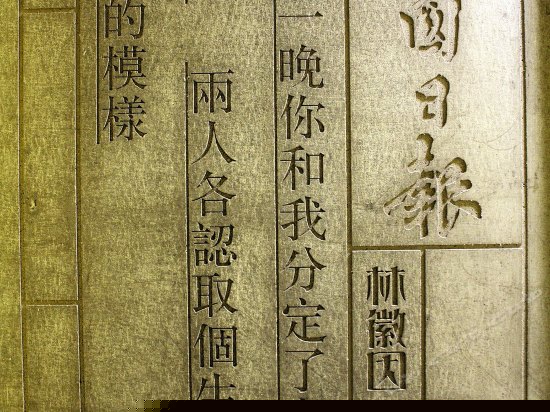 國日報
林徽因
一晚你和我分定了
兩人各認取個生
的模樣